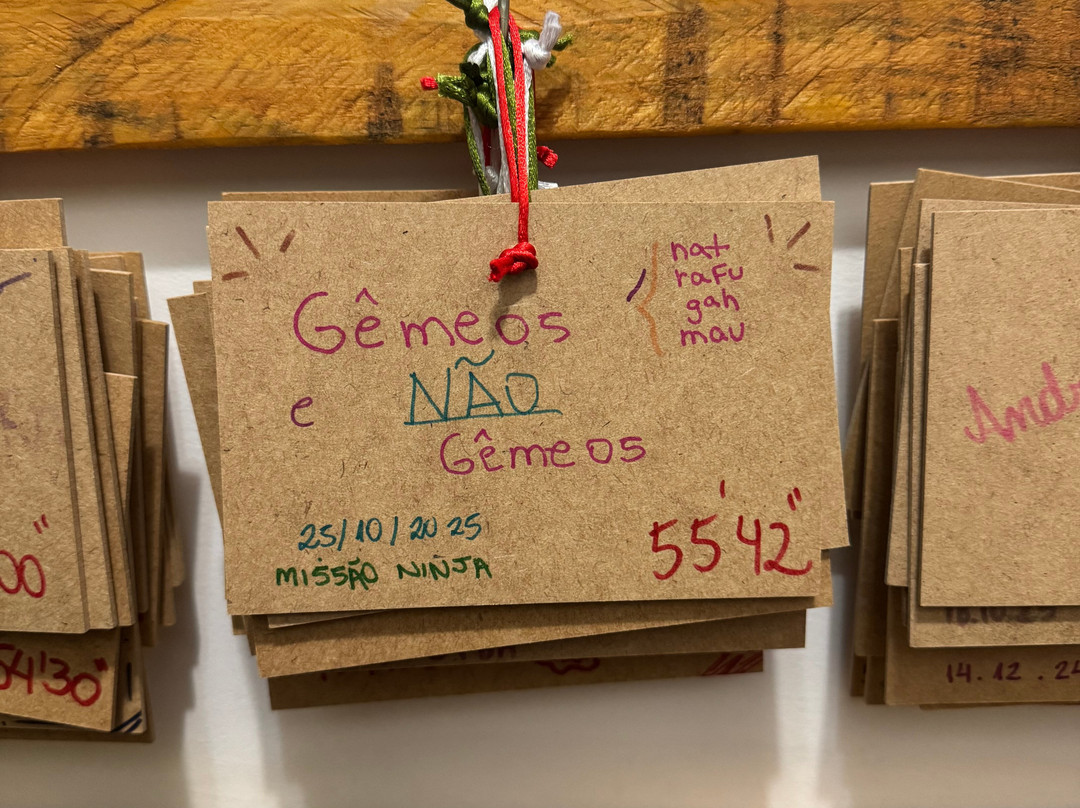 Gêmeos
e NÃO
Gêmeos
nat
rafu
gah
mau
25/10/2025
MISSÃO NINJA
55'42"
00"
54'30"
14.12.24